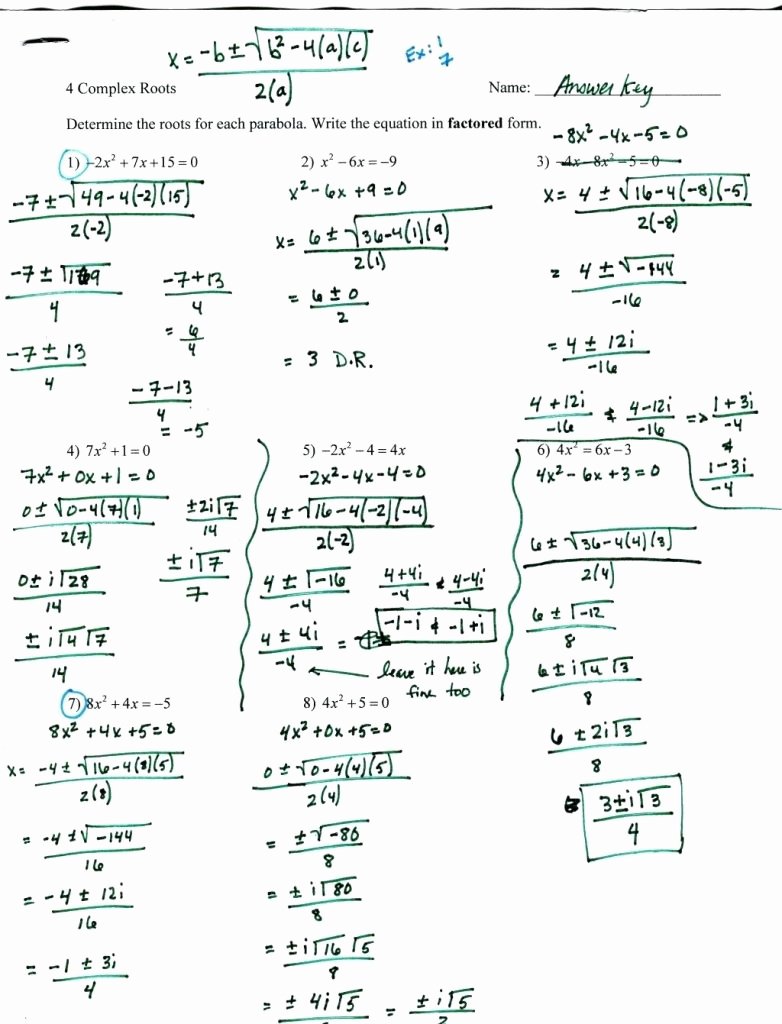 x = -b ± √b² - 4(a)(c)
2(a)
Ex: 1
7
4 Complex Roots
Name: Answer Key
Determine the roots for each parabola. Write the equation in factored form.
1) -2x² + 7x + 15 = 0
-7 ± √49 - 4(-2)(15)
2(-2)
-7 ± √169
4
-7 ± 13
4
-7 + 13
4
= 6
4
-7 - 13
4
= -5
2) x² - 6x = -9
x² - 6x + 9 = 0
x = 6 ± √36 - 4(1)(9)
2(1)
= 6 ± 0
2
= 3 D.R.
-8x² - 4x - 5 = 0
3) -4x - 8x² - 5 = 0
x = 4 ± √16 - 4(-8)(-5)
2(-8)
= 4 ± √-144
-16
= 4 ± 12i
-16
4 + 12i & 4 - 12i => 1 + 3i
-16 -16 -4
&
1 - 3i
-4
4) 7x² + 1 = 0
7x² + 0x + 1 = 0
0 ± √0 - 4(7)(1)
2(7)
0 ± i√28
14
± i√4 √7
14
± 2i√7
14
± i√7
7
5) -2x² - 4 = 4x
-2x² - 4x - 4 = 0
4 ± √16 - 4(-2)(-4)
2(-2)
4 ± √-16
-4
4 + 4i & 4 - 4i
-4 -4
4 ± 4i =
-4
-1 - i & -1 + i
leave it here is
fine too
6) 4x² = 6x - 3
4x² - 6x + 3 = 0
6 ± √36 - 4(4)(3)
2(4)
6 ± √-12
8
6 ± i√4 √3
8
6 ± 2i√3
8
3 ± i√3
4
7) 8x² + 4x = -5
8x² + 4x + 5 = 0
x = -4 ± √16 - 4(8)(5)
2(8)
= -4 ± √-144
16
= -4 ± 12i
16
= -1 ± 3i
4
8) 4x² + 5 = 0
4x² + 0x + 5 = 0
0 ± √0 - 4(4)(5)
2(4)
= ± √-80
8
= ± i√80
8
= ± i√16 √5
8
= ± 4i√5 = ± i√5
2